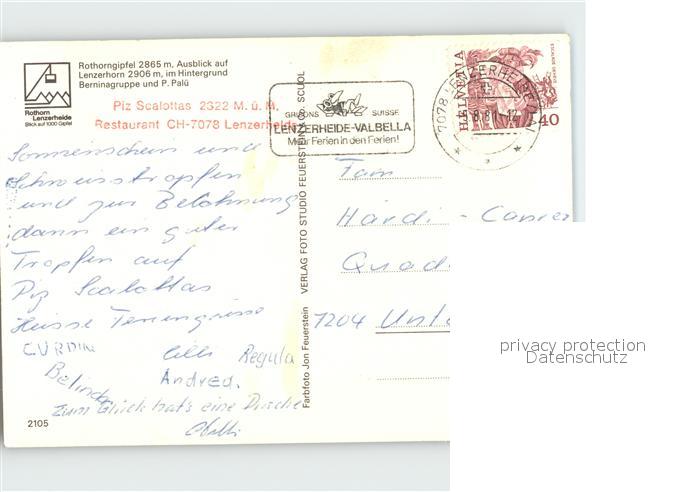 Rothorngipfel 2865 m, Ausblick auf
Lenzerhorn 2906 m, im Hintergrund
Berninagruppe und P. Palü
Rothorn
Lenzerheide
Blick auf 1000 Gipfel
Piz Scalottas 2322 M. ü. M.
Restaurant CH-7078 Lenzerheide
GRISONS SUISSE
LENZERHEIDE-VALBELLA
Mehr Ferien in den Ferien!
7078 LENZERHEIDE
HELVETIA
40
Sonnenschein und
Schweisstropfen
und zur Belohnung
dann ein guter
Tropfen auf
Piz Scalottas
Heisse Feriengrüsse
CURDIN
Regula
Belinda
Andrea.
zum Glück hat's eine Dusche
2105
Farbfoto Jon Feuerstein
VERLAG FOTO STUDIO FEUERSTEIN & CO. SCUOL
Fam
Härdi -
Quad
7204 Unt
privacy protection
Datenschutz